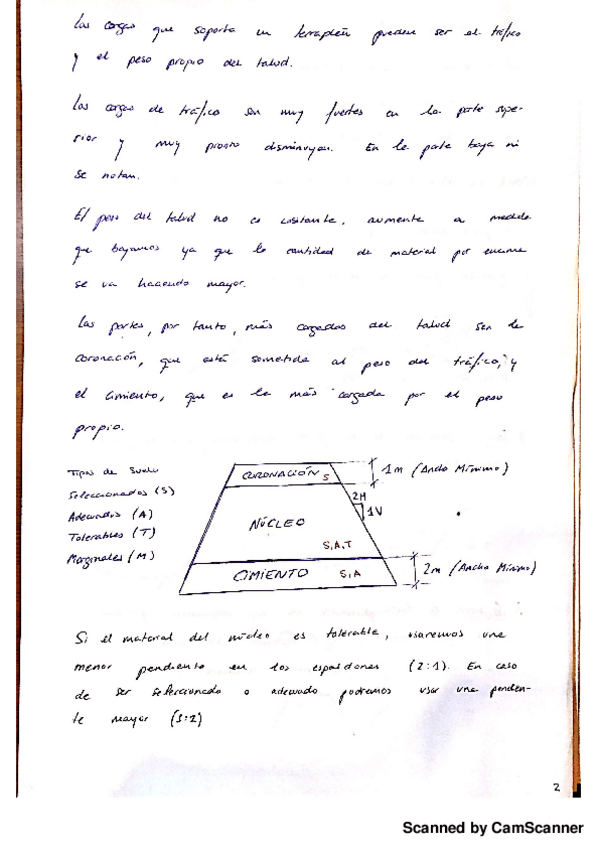 Las cargas que soporta un terraplén pueden ser el tráfico
y el peso propio del talud.
Las cargas de tráfico son muy fuertes en la parte supe-
rior y muy pronto disminuyen. En la parte baja ni
se notan.
El peso del talud no es constante, aumenta a medida
que bajamos ya que la cantidad de material por encima
se va haciendo mayor.
Las partes, por tanto, más cargadas del talud son la
coronación, que está sometida al peso del tráfico, y
el cimiento, que es la más cargada por el peso
propio.
Tipos de suelo
Seleccionados (S)
Adecuados (A)
Tolerables (T)
Marginales (M)
CORONACIÓN S
1m (Ancho Mínimo)
2H
1V
NÚCLEO
S,A,T
CIMIENTO S,A
2m (Ancho Mínimo)
Si el material del núcleo es tolerable, usaremos una
menor pendiente en los espaldones (2:1). En caso
de ser seleccionado o adecuado podremos usar una pendien-
te mayor (3:2)
2
Scanned by CamScanner